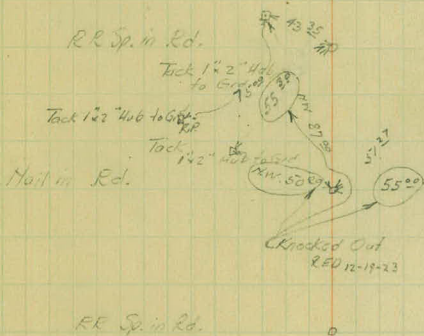 43 35
RR Sp. in Rd.
Tack 1"x2" Hub
to Grd.
Tack 1"x2" Hub to Grd.
RP
Tack
1"x2" Hub to Grd
51.27
Nail in Rd.
N.W. 50
55 00
Knocked Out
RED 12-19-23
RR Sp. in Rd.